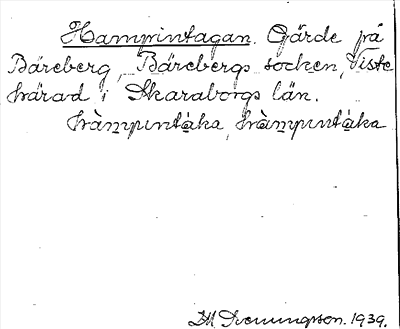 Hampintagan. Gärde på
Bäreberg, Bärebergs socken, Viste
härad i Skaraborgs län.
hàmpıntáka, hàmpıntáka
D.M. Svenningson. 1939.